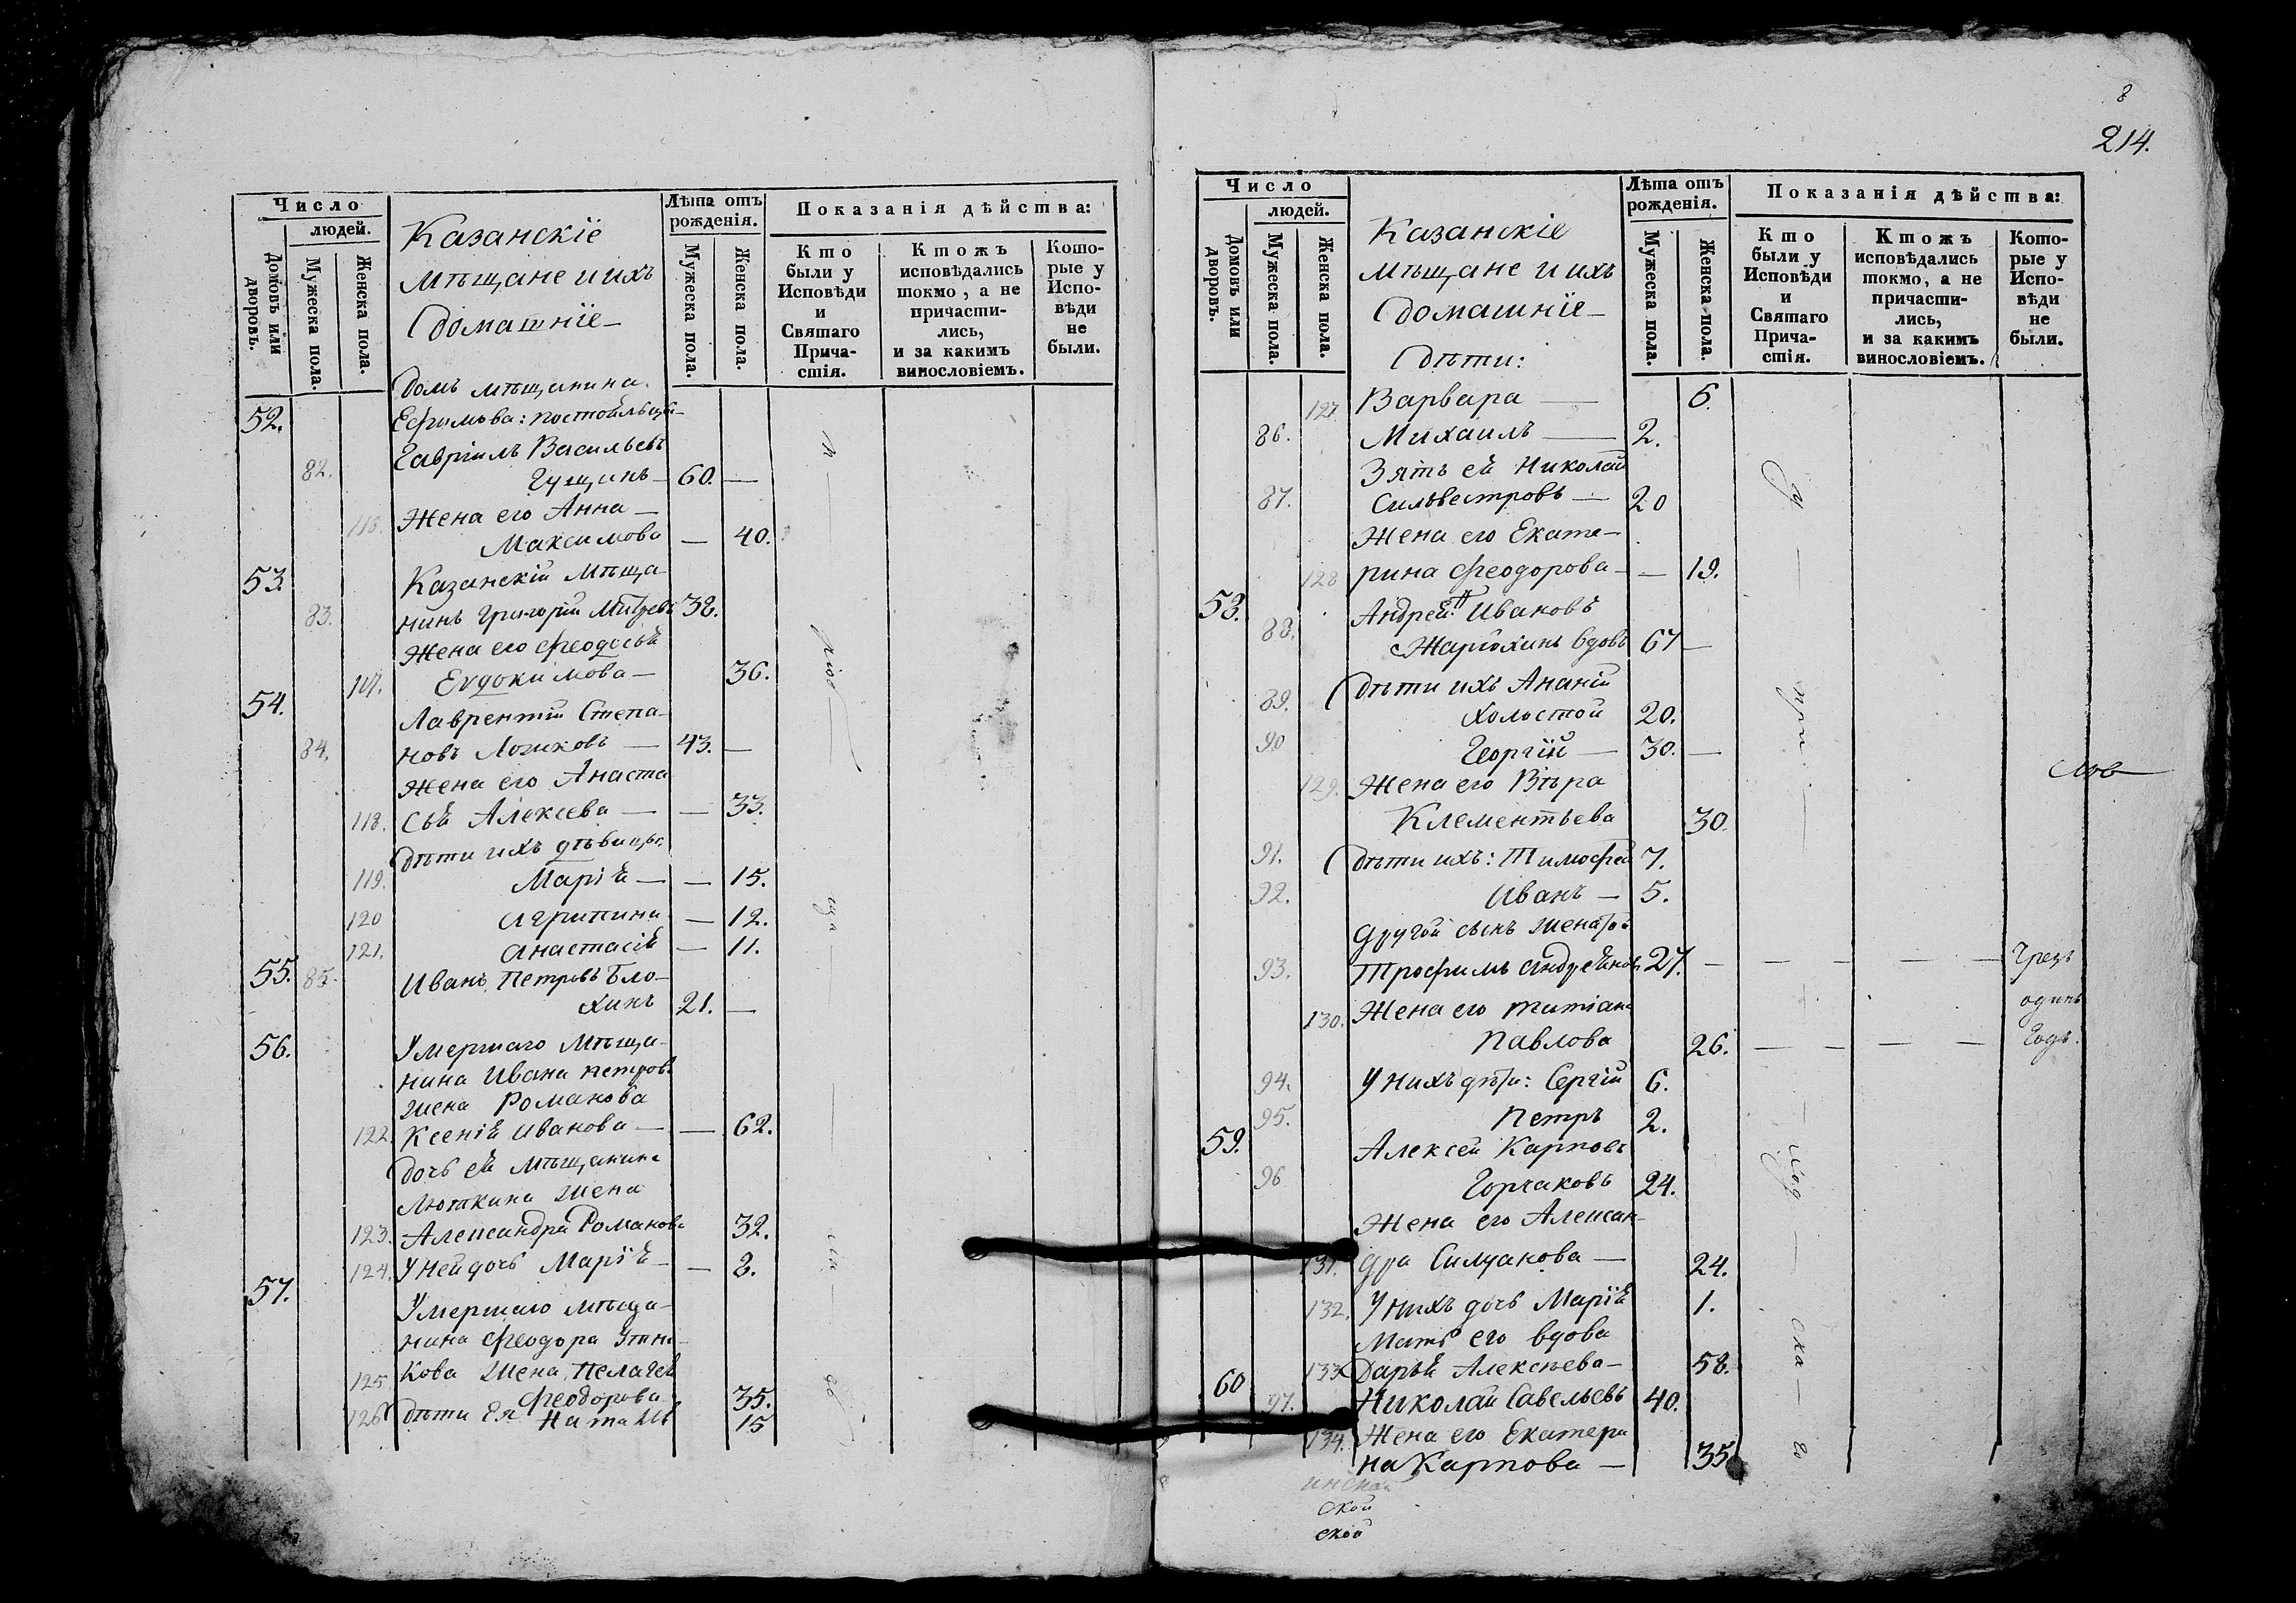 Число
людей.
Домовъ или дворовъ.
Мужеска пола.
Женска пола.
Казанскіе
мѣщане и ихъ
домашніе
Лѣта отъ
рожденія.
Мужеска пола.
Женска пола.
Показанія дѣйства:
Кто
были у
Исповѣди
и
Святаго
Прича-
стія.
Ктожъ
исповѣдались
токмо, а не
причасти-
лись,
и за какимъ
винословіемъ.
Кото-
рые у
Испо-
вѣди
не
были.
Домъ мѣщанина
52. Ефимова: постояльцы
Гавріилъ Васильевъ
82. Гущинъ 60. —
Жена его Анна —
Максимова — 40.
53. Казанскій Мѣща-
83. нинъ Григорій 38.
Жена его Феодосья
117. Евдокимова — 36.
54. Лаврентій Степа-
84. новъ — 43. —
Жена его Анаста
118. сья Алексеева — — 33.
Дѣти ихъ дѣвицы:
119. Марія — — 15.
120 Агрипина — 12.
121. Анастасія — 11.
55. 85. Иванъ Петровъ Бло-
хинъ 21. —
56. Умершаго Мѣща-
нина Ивана Петрова
жена Романова
122. Ксенія Иванова — — 62.
Дочь ея мѣщанина
Люткина жена
123. Александра Романова 32.
124. У ней дочь Марія — — 2.
57. Умершаго мѣща-
нина Феодора Утни-
125. кова жена Пелагея
Феодорова 35.
126 Дѣти Ея Наталья 15
8
214.
Число
людей.
Домовъ или дворовъ.
Мужеска пола.
Женска пола.
Казанскіе
мѣщане и ихъ
домашніе —
Дѣти:
Лѣта отъ
рожденія.
Мужеска пола.
Женска пола.
Показанія дѣйства:
Кто
были у
Исповѣди
и
Святаго
Прича-
стія.
Ктожъ
исповѣдались
токмо, а не
причасти-
лись,
и за какимъ
винословіемъ.
Кото-
рые у
Испо-
вѣди
не
были.
127 Варвара — 6.
86. Михаилъ — 2.
Зять ея Николай
87. Сильвестровъ — 20
Жена его Екате-
128 рина Феодорова — — 19.
58. Андрей Ивановъ
88. вдовъ 67 —
89. Дѣти ихъ Ананій
холостой 20.
90 Георгій — 30. —
129. Жена его Вѣра
Клементьева 30.
91. Дѣти ихъ: Тимофей 7.
92. Иванъ — 5.
другой сынъ женатой
93. Трофимъ Андреяновъ 27. — — — — — Чрезъ
130. Жена его Татіана одинъ
Павлова 26. — — — — Годъ.
94. У нихъ дѣти: Сергій 6.
95. Петръ 2.
59. Алексей Карповъ
96 Горчаковъ 24.
Жена его Алексан-
131. дра Силуанова — 24.
132. У нихъ дочь Марія 1.
Мать его вдова
133 Дарья Алексѣева — 58.
60 97. Николай Савельевъ 40.
134. Жена его Екатери
на Карпова — 35
ской
ской